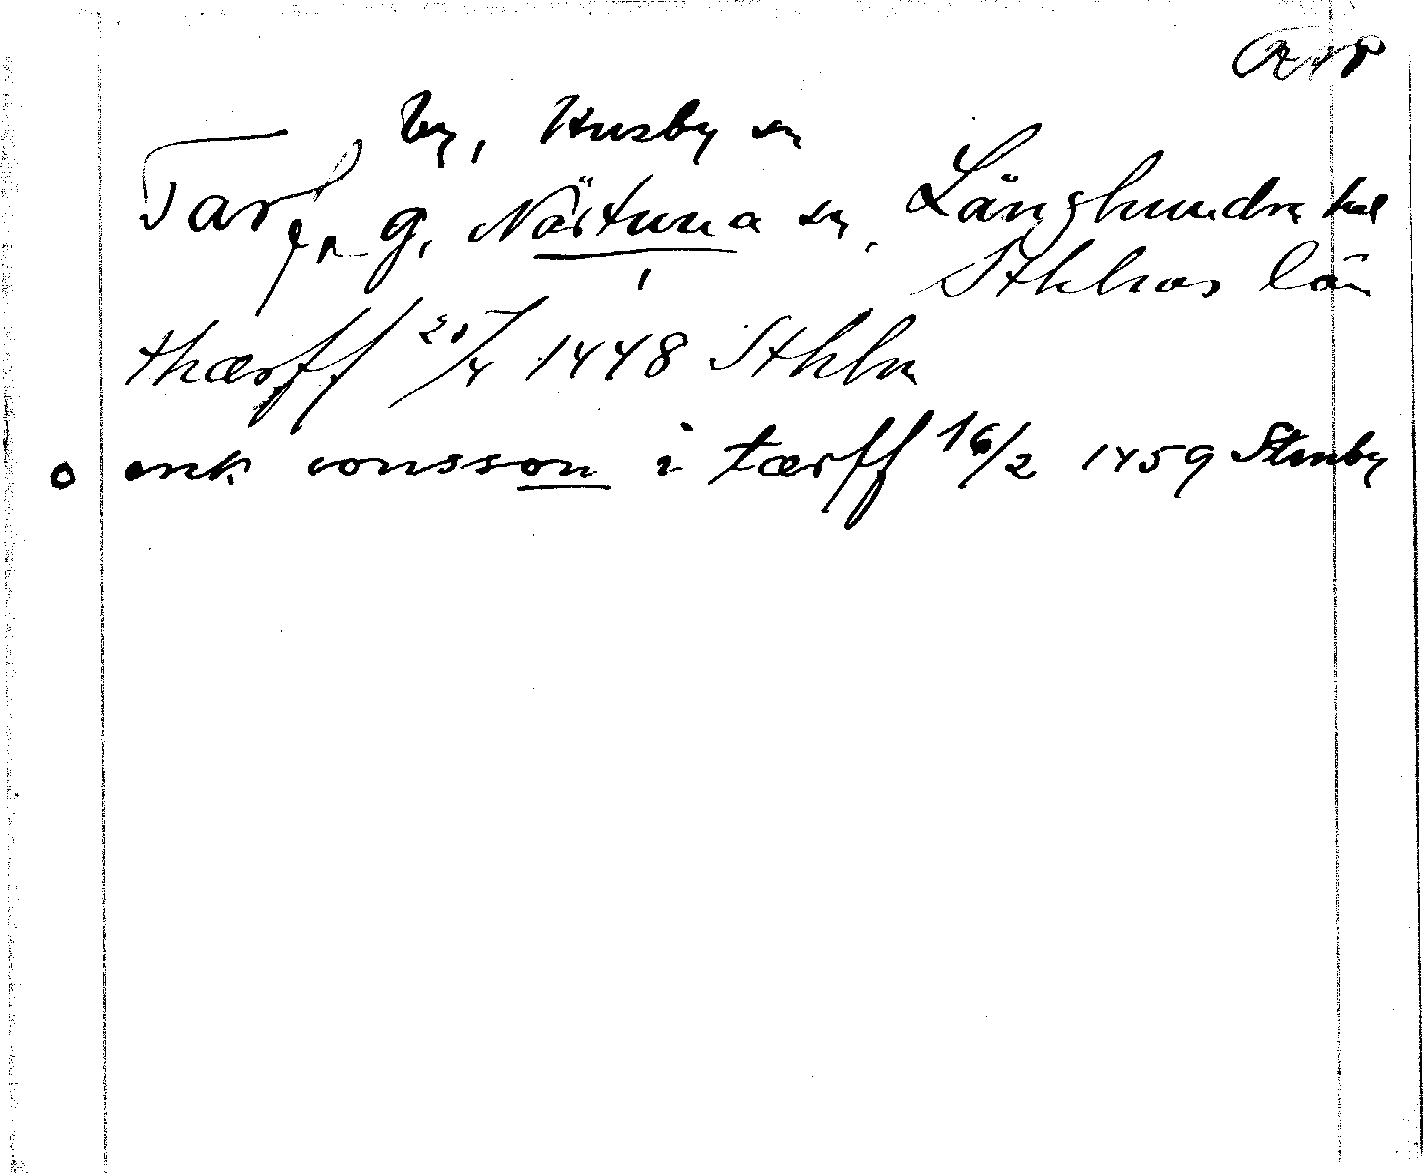 by, Husby sn
Tarf, g, Närtuna sn, Långhundra hd
Sthlms län
thærff 20/4 1448 Sthlm
o enk ionsson i tærff 16/2 1459 Stenby